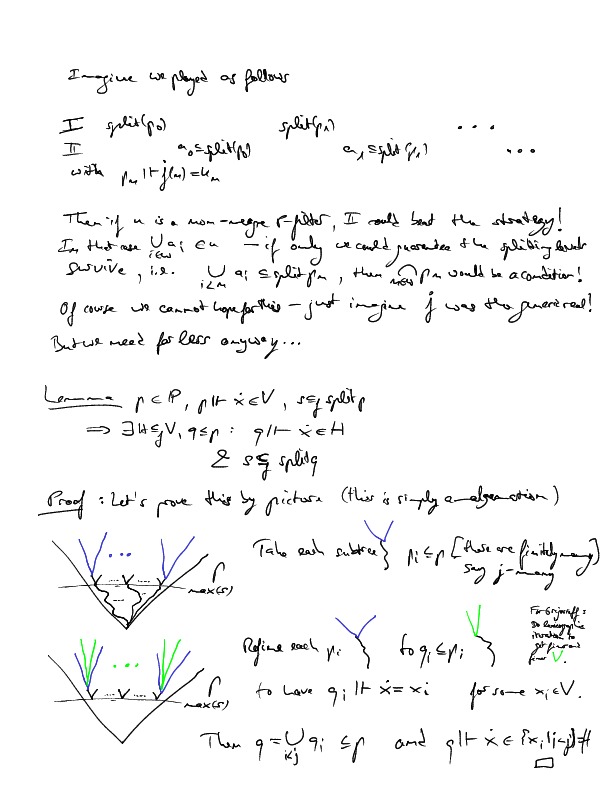 Imagine we played as follows
I split(p₀) split(p₁) ...
II a₀ ⊆ split(p₀) a₁ ⊆ split(p₁) ...
with pₙ ⊩ j̇(n) = kₙ
Then if u is a non-meagre r-filter, I could beat the strategy!
In that case ⋃_{i∈ω} aᵢ ∈ u — if only we could guarantee the splitting levels
survive, i.e. ⋃_{i<n} aᵢ ⊆ split pₙ, then ⋂_{n∈ω} pₙ would be a condition!
Of course we cannot hope for this – just imagine j̇ was the generic real!
But we need far less anyway...
Lemma p ∈ P, p ⊩ ẋ ∈ V, s ⊆_f split p
⟹ ∃ H ⊆_f V, q ≤ p : q ⊩ ẋ ∈ H
& s ⊆ split q
Proof : Let's prove this by picture (this is simply amalgamation)
Take each subtree pᵢ ≤ p [there are finitely many,
say j-many
max(s)
Refine each pᵢ to qᵢ ≤ pᵢ
For Grigorieff :
iteration to
to have qᵢ ⊩ ẋ = xᵢ for some xᵢ ∈ V.
max(s)
Then q = ⋃_{i<j} qᵢ ≤ p and q ⊩ ẋ ∈ {xᵢ | i<j} = H